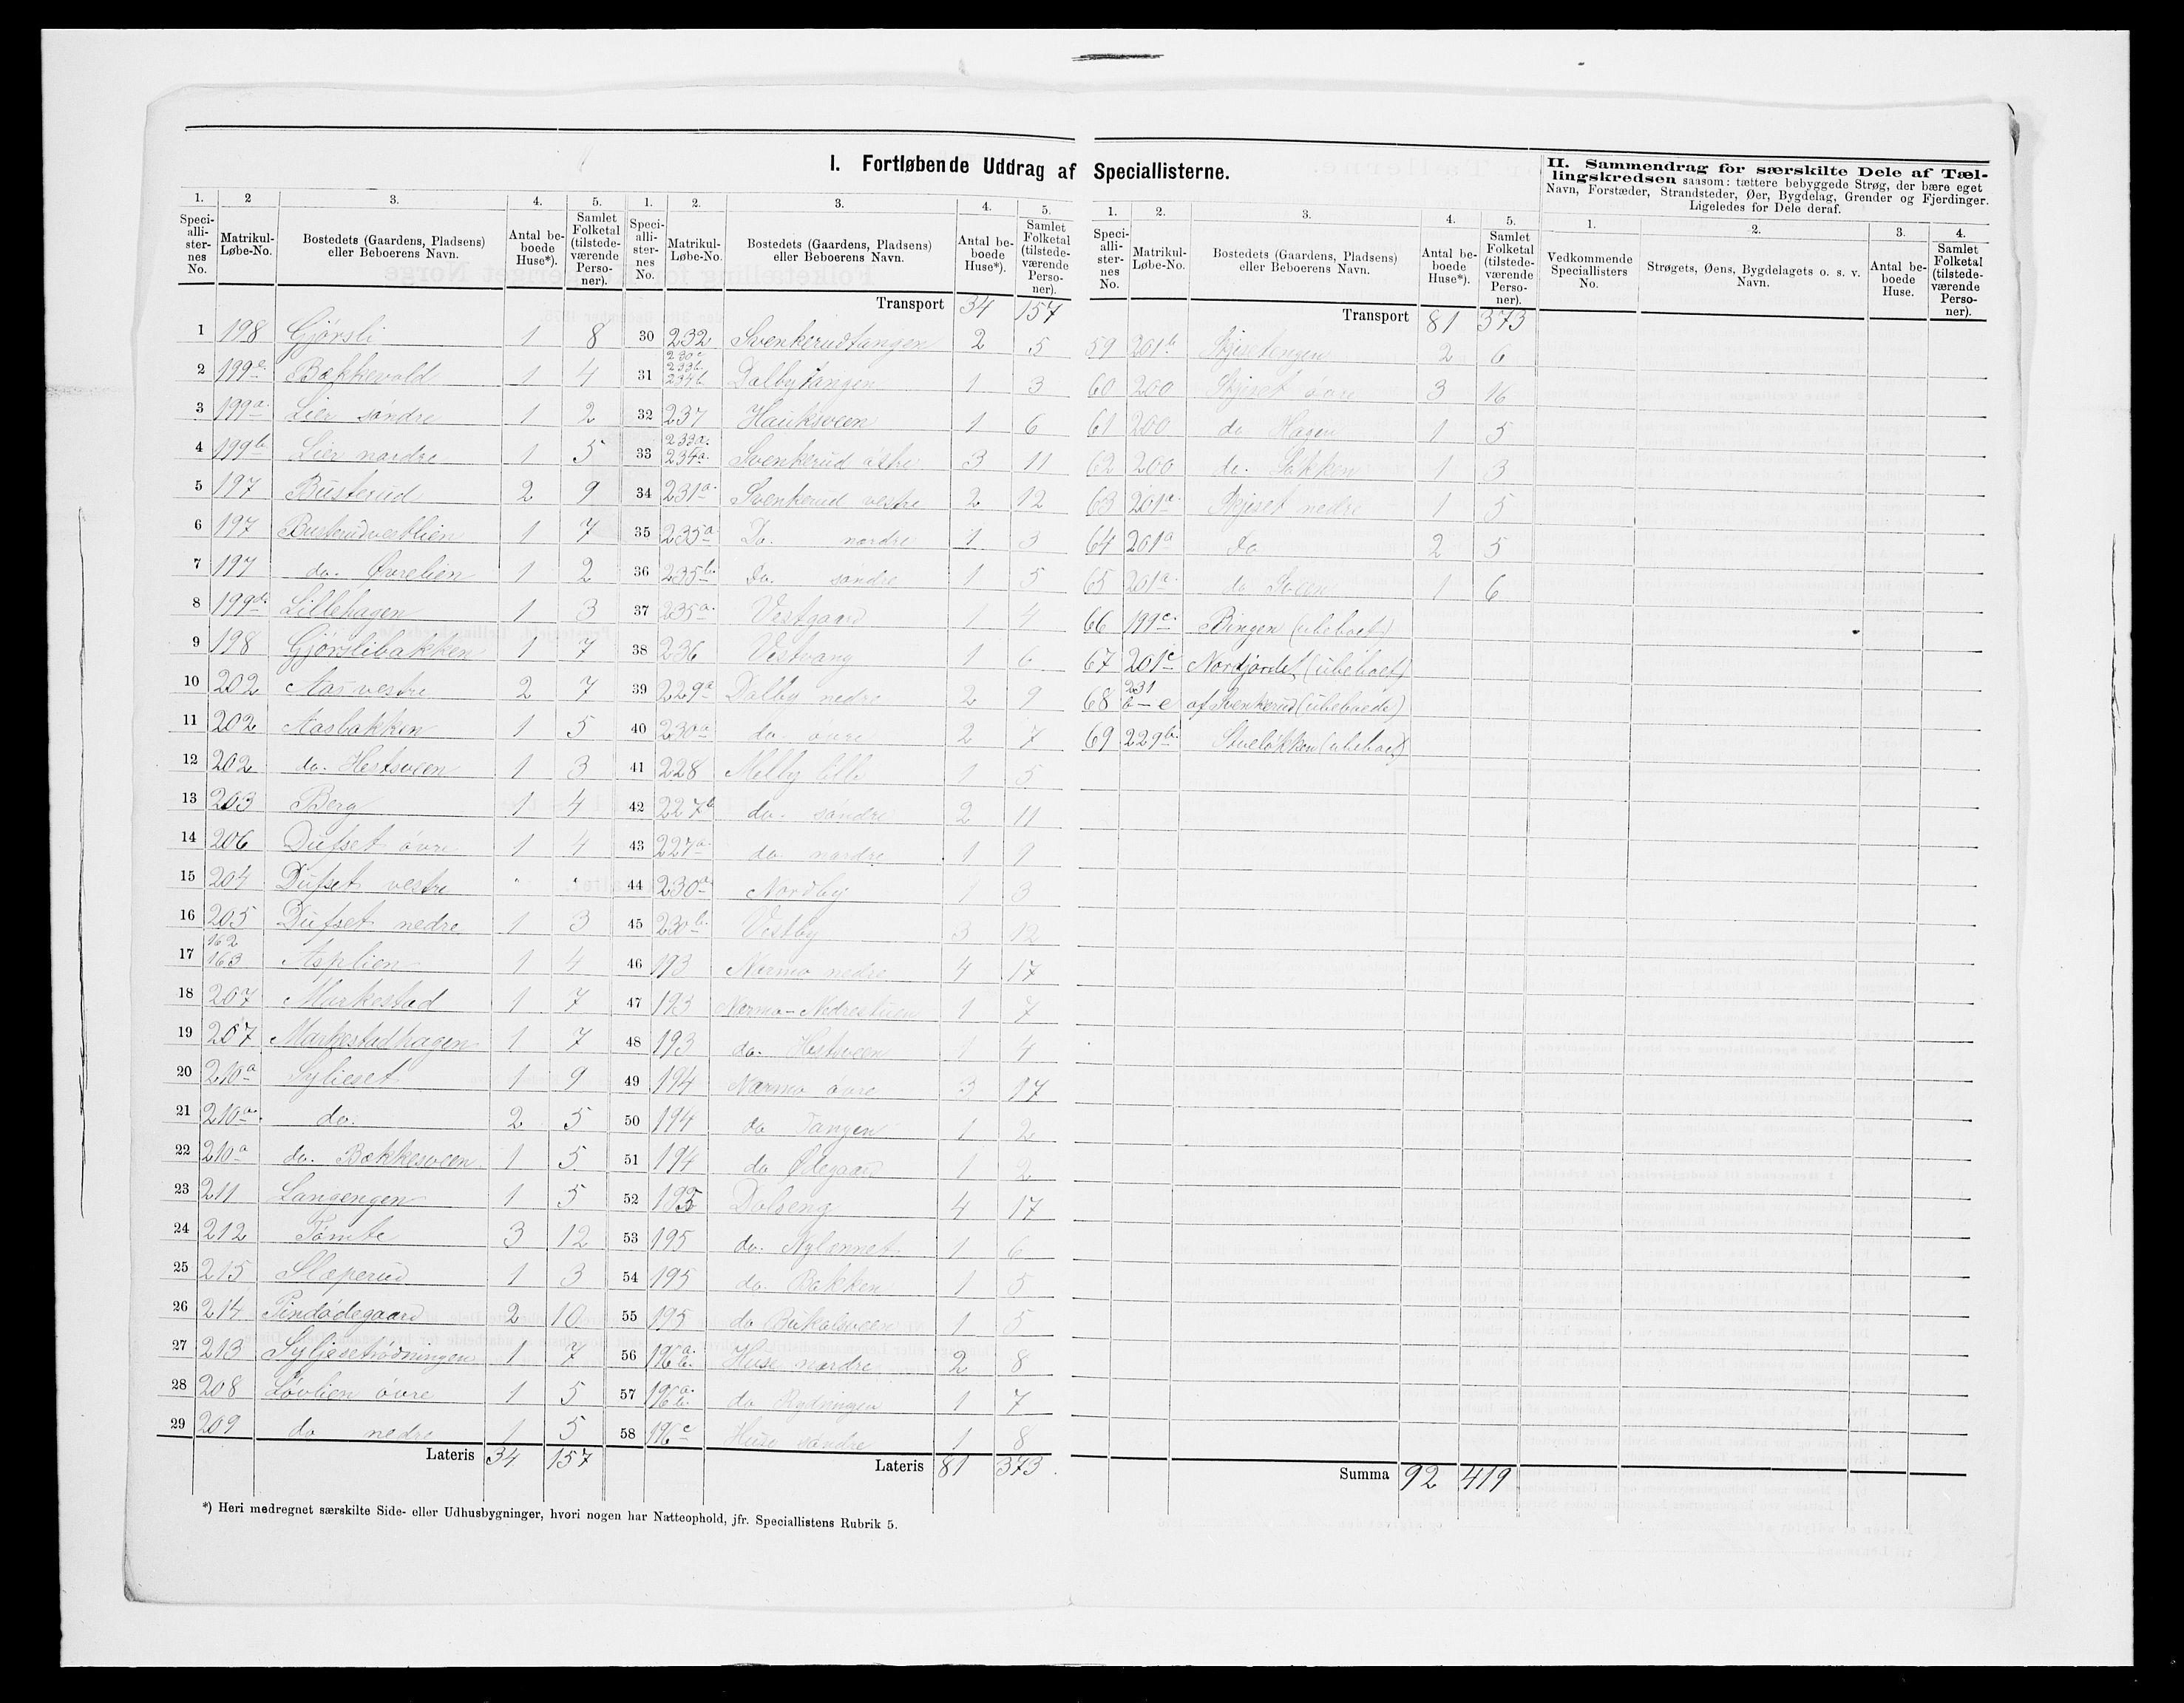 I. Fortløbende Uddrag af Speciallisterne.
II. Sammendrag for særskilte Dele af Tæl-
lingskredsen saasom: tættere bebyggede Strøg, der bære eget
Navn, Forstæder, Strandsteder, Øer, Bygdelag, Grender og Fjerdinger.
Ligeledes for Dele deraf.
1. 2 3. 4. 5.
Speciallisternes No. Matrikul-Løbe-No. Bostedets (Gaardens, Pladsens) eller Beboerens Navn. Antal beboede Huse*). Samlet Folketal (tilstedeværende Personer).
1 198 Gjörsli 1 8
2 199 Bækkevold 1 4
3 199a. Lier söndre 1 2
4 199b Lier nordre 1 5
5 197 Busterud 2 9
6 197 Busterudvestlien 1 7
7 197 do. Øvrelien 1 2
8 199d. Lillehagen 1 3
9 198 Gjörslibakken 1 7
10 202 Aas vestre 2 7
11 202 Aasbakken 1 5
12 202 do. Hestsveen 1 3
13 203 Berg 1 4
14 206 Dufset övre 1 4
15 204 Dufset vestre " "
16 205 Dufset nedre 1 3
17 162 163 Asplien 1 4
18 207 Markestad 1 7
19 207 Markestadhagen 1 7
20 210a Sylieset 1 9
21 210a. do. 2 5
22 210a do. Bækkesveen 1 5
23 211 Langengen 1 5
24 212 Tömte 3 12
25 215 Slæperud 1 3
26 214 Pindödegaard 2 10
27 213 Syljesetrödningen 1 7
28 208 Lövlien övre 1 5
29 209 do nedre 1 5
Lateris 34 157
1. 2. 3. 4. 5.
Speciallisternes No. Matrikul-Løbe-No. Bostedets (Gaardens, Pladsens) eller Beboerens Navn. Antal beboede Huse*). Samlet Folketal (tilstedeværende Personer).
Transport 34 157
30 232 Svenkerudtangen 2 5
31 230c 233b. 234b. Dalbytangen 1 3
32 237 Hauksveen 1 6
33 233a. 234a. Svenkerud östre 3 11
34 231a. Svenkerud vestre 2 12
35 235a Do. nordre 1 3
36 235b. Do. söndre 1 5
37 235a. Vestgaard 1 4
38 236 Vestvang 1 6
39 229a Dalby nedre 2 9
40 230a do. övre 2 7
41 228 Melby lille 1 5
42 227b do. söndre 2 11
43 227a. do. nordre 1 9
44 230a Nordby 1 3
45 230b. Vestby 3 12
46 193 Nærmo nedre 4 17
47 193 Nærmo-Nedrestuen 1 7
48 193 do. Hestsveen 1 4
49 194 Nærmo övre 3 17
50 194 do Tangen 1 2
51 194 do Ødegaard 1 2
52 195 Dolseng 4 17
53 195 do. Nylænnet 1 6
54 195 do. Bakken 1 5
55 195 do 1 5
56 196a. b. Huse nordre 2 8
57 196a. b. do Rydningen 1 7
58 196c Huse söndre 1 8
Lateris 81 373
1. 2. 3. 4. 5.
Speciallisternes No. Matrikul-Løbe-No. Bostedets (Gaardens, Pladsens) eller Beboerens Navn. Antal beboede Huse*). Samlet Folketal (tilstedeværende Personer).
Transport 81 373
59 201b 2 6
60 200 övre 3 16
61 200 do Hagen 1 5
62 200 do. Løkken 1 3
63 201a. nedre 1 5
64 201a Do 2 5
65 201a. do Sveen 1 6
66 199c. Bingen (ubeboet)
67 201c Nordjordet (ubeboet)
68 231 b-e af Svenkerud (ubeboede)
69 229b. Stuelökken (ubeboet)
Summa 92 419
1. 2. 3. 4.
Vedkommende Speciallisters No. Strøgets, Øens, Bygdelagets o. s. v. Navn. Antal beboede Huse. Samlet Folketal (tilstedeværende Personer).
*) Heri medregnet særskilte Side- eller Udhusbygninger, hvori nogen har Natteophold, jfr. Speciallistens Rubrik 5.